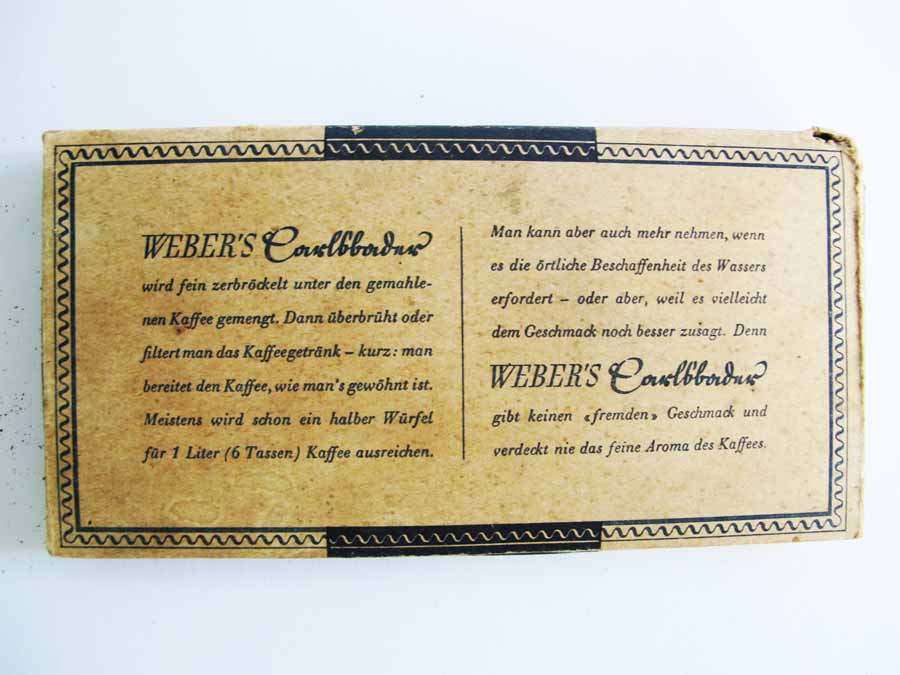 WEBER'S Carlsbader
wird fein zerbröckelt unter den gemahle-
nen Kaffee gemengt. Dann überbrüht oder
filtert man das Kaffeegetränk – kurz: man
bereitet den Kaffee, wie man's gewöhnt ist.
Meistens wird schon ein halber Würfel
für 1 Liter (6 Tassen) Kaffee ausreichen.
Man kann aber auch mehr nehmen, wenn
es die örtliche Beschaffenheit des Wassers
erfordert – oder aber, weil es vielleicht
dem Geschmack noch besser zusagt. Denn
WEBER'S Carlsbader
gibt keinen «fremden» Geschmack und
verdeckt nie das feine Aroma des Kaffees.